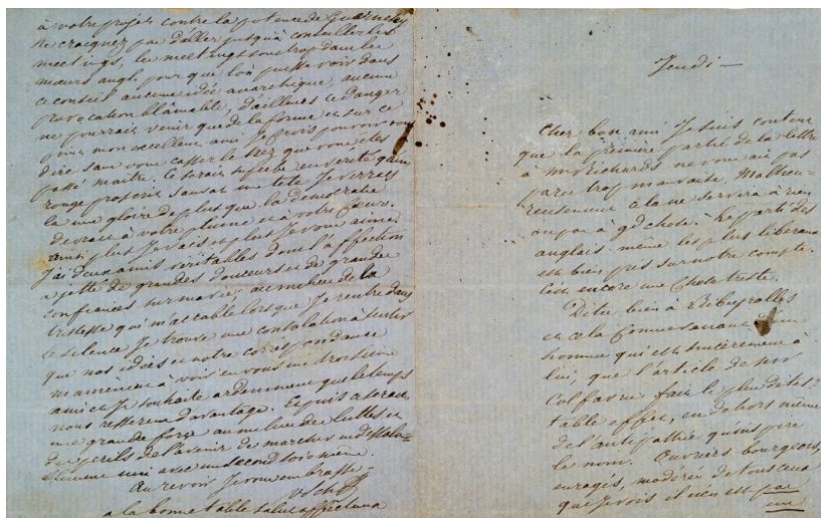 à votre projet contre la potence de Guernesey
Ne craignez pas d'aller jusqu'à conseiller les
meetings, les meetings sont trop dans les
mœurs angl. pour que l'on puisse voir dans
ce conseil aucune idée anarchique, aucune
provocation blâmable, d'ailleurs ce danger
ne pourrait venir que de la forme et sur ce
point mon excellent ami je crois pouvoir vous
dire sans vous casser le nez que vous êtes
passé maître. Ce serait superbe
rouge proscrit sauvât une tête. Je verrais
là une gloire de plus que la démocratie
devrait à votre plume et à votre cœur.
plus je vais et plus je vous aime.
J'ai deux amis véritables dont l'affection
a jetté de grandes douceurs et de grandes
confiances sur ma vie; au milieu de la
tristesse qui m'accable lorsque je rentre dans
le silence je trouve une consolation à sentir
que nos idées et notre correspondance
m'amènent à voir en vous un troisième
ami et je souhaite ardemment que le temps
nous resserre davantage. Et puis ce serait
une grande force au milieu des luttes et
des périls de l'avenir de marcher
uni avec un second soi-même.
Au revoir je vous embrasse
V Sch
a la bonne table salut affectueux
Jeudi —
Cher bon ami Je suis content
que la première partie de la lettre
à Mr Richards ne vous ait pas
paru trop mauvaise. Malheu-
reusement cela ne servira à rien
ou pas à gd chose. Le parti des
anglais même les plus libéraux
est bien pris sur notre compte.
C'est encore une chose triste.
Dites bien à Ribeyrolles
et cela
homme qui est sincèrement à
lui, que l'article de
Colfavru fait le plus détes-
table effet, en dehors même
de l'antipathie qu'inspire
le nom. Ouvriers bourgeois,
enragés, modérés de tous ceux
que je vois il n'en est pas
un